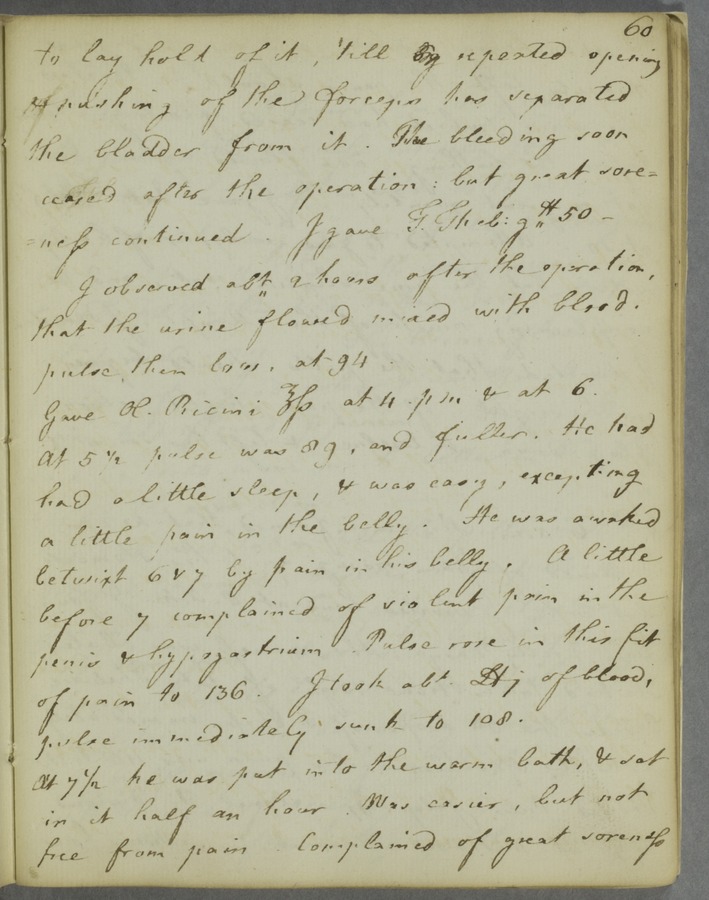 60
to lay hold of it, 'till by repeated opening
& pushing of the forceps has separated
the bladder from it. The bleeding soon
ceased after the operation: but great sore=
=ness continued. I gave T. Theb: gtt 50 -
I observed abt. 2 hours after the operation,
that the urine flowed mixed with blood.
pulse then low, at 94.
Gave Ol. Ricini ℥ß at 4 pm & at 6.
At 5 1/2 pulse was 89, and fuller. He had
had a little sleep, & was easy, excepting
a little pain in the belly. He was awaked
betwixt 6 & 7 by pain in his belly. A little
before 7 complained of violent pain in the
penis & hypogastrium. Pulse rose in this fit
of pain to 136. I took abt. ℔j of blood,
pulse immediately sunk to 108.
At 7 1/2 he was put into the warm bath, & sat
in it half an hour. Was easier, but not
free from pain. Complained of great soreness